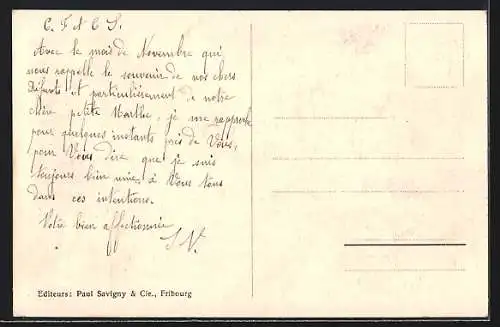 C. F. N C S.
Avec le mois de Novembre qui
nous rappelle le souvenir de nos chers
Défunts et particulièrement de notre
chère petite Marthe, je me rapproche
pour quelques instants près de Vous,
pour Vous dire que je suis
toujours bien unie à Vous tous
dans ces intentions.
Votre bien affectionnée
S V.
Editeurs: Paul Savigny & Cie., Fribourg